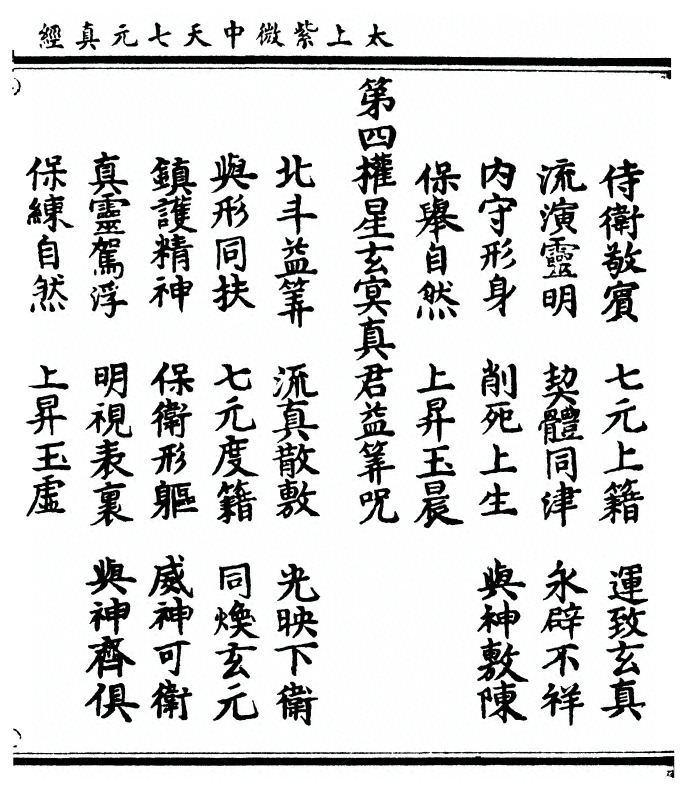 太上紫微中天七元真經
侍衛敬賓　七元上籍　運致玄真
流演靈明　契體同津　永辟不祥
内守形身　削死上生　與神敷陳
保舉自然　上昇玉晨
第四權星玄冥真君益筭呪
北斗益筭　流真散敷　光映下衛
與形同扶　七元度籍　同煥玄元
鎮護精神　保衛形軀　威神可衛
真靈駕浮　明視表裏　與神齊俱
保練自然　上昇玉虛